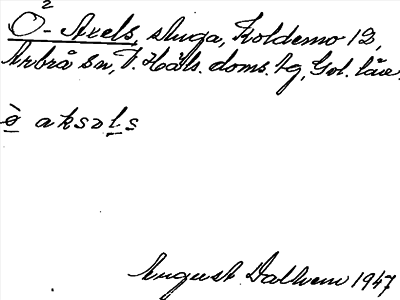 Ö²-Axels, stuga, Koldemo 12,
Arbrå sn, V. Häls. doms. tg, Gol. län.
è aksəls
August Dalhem 1947